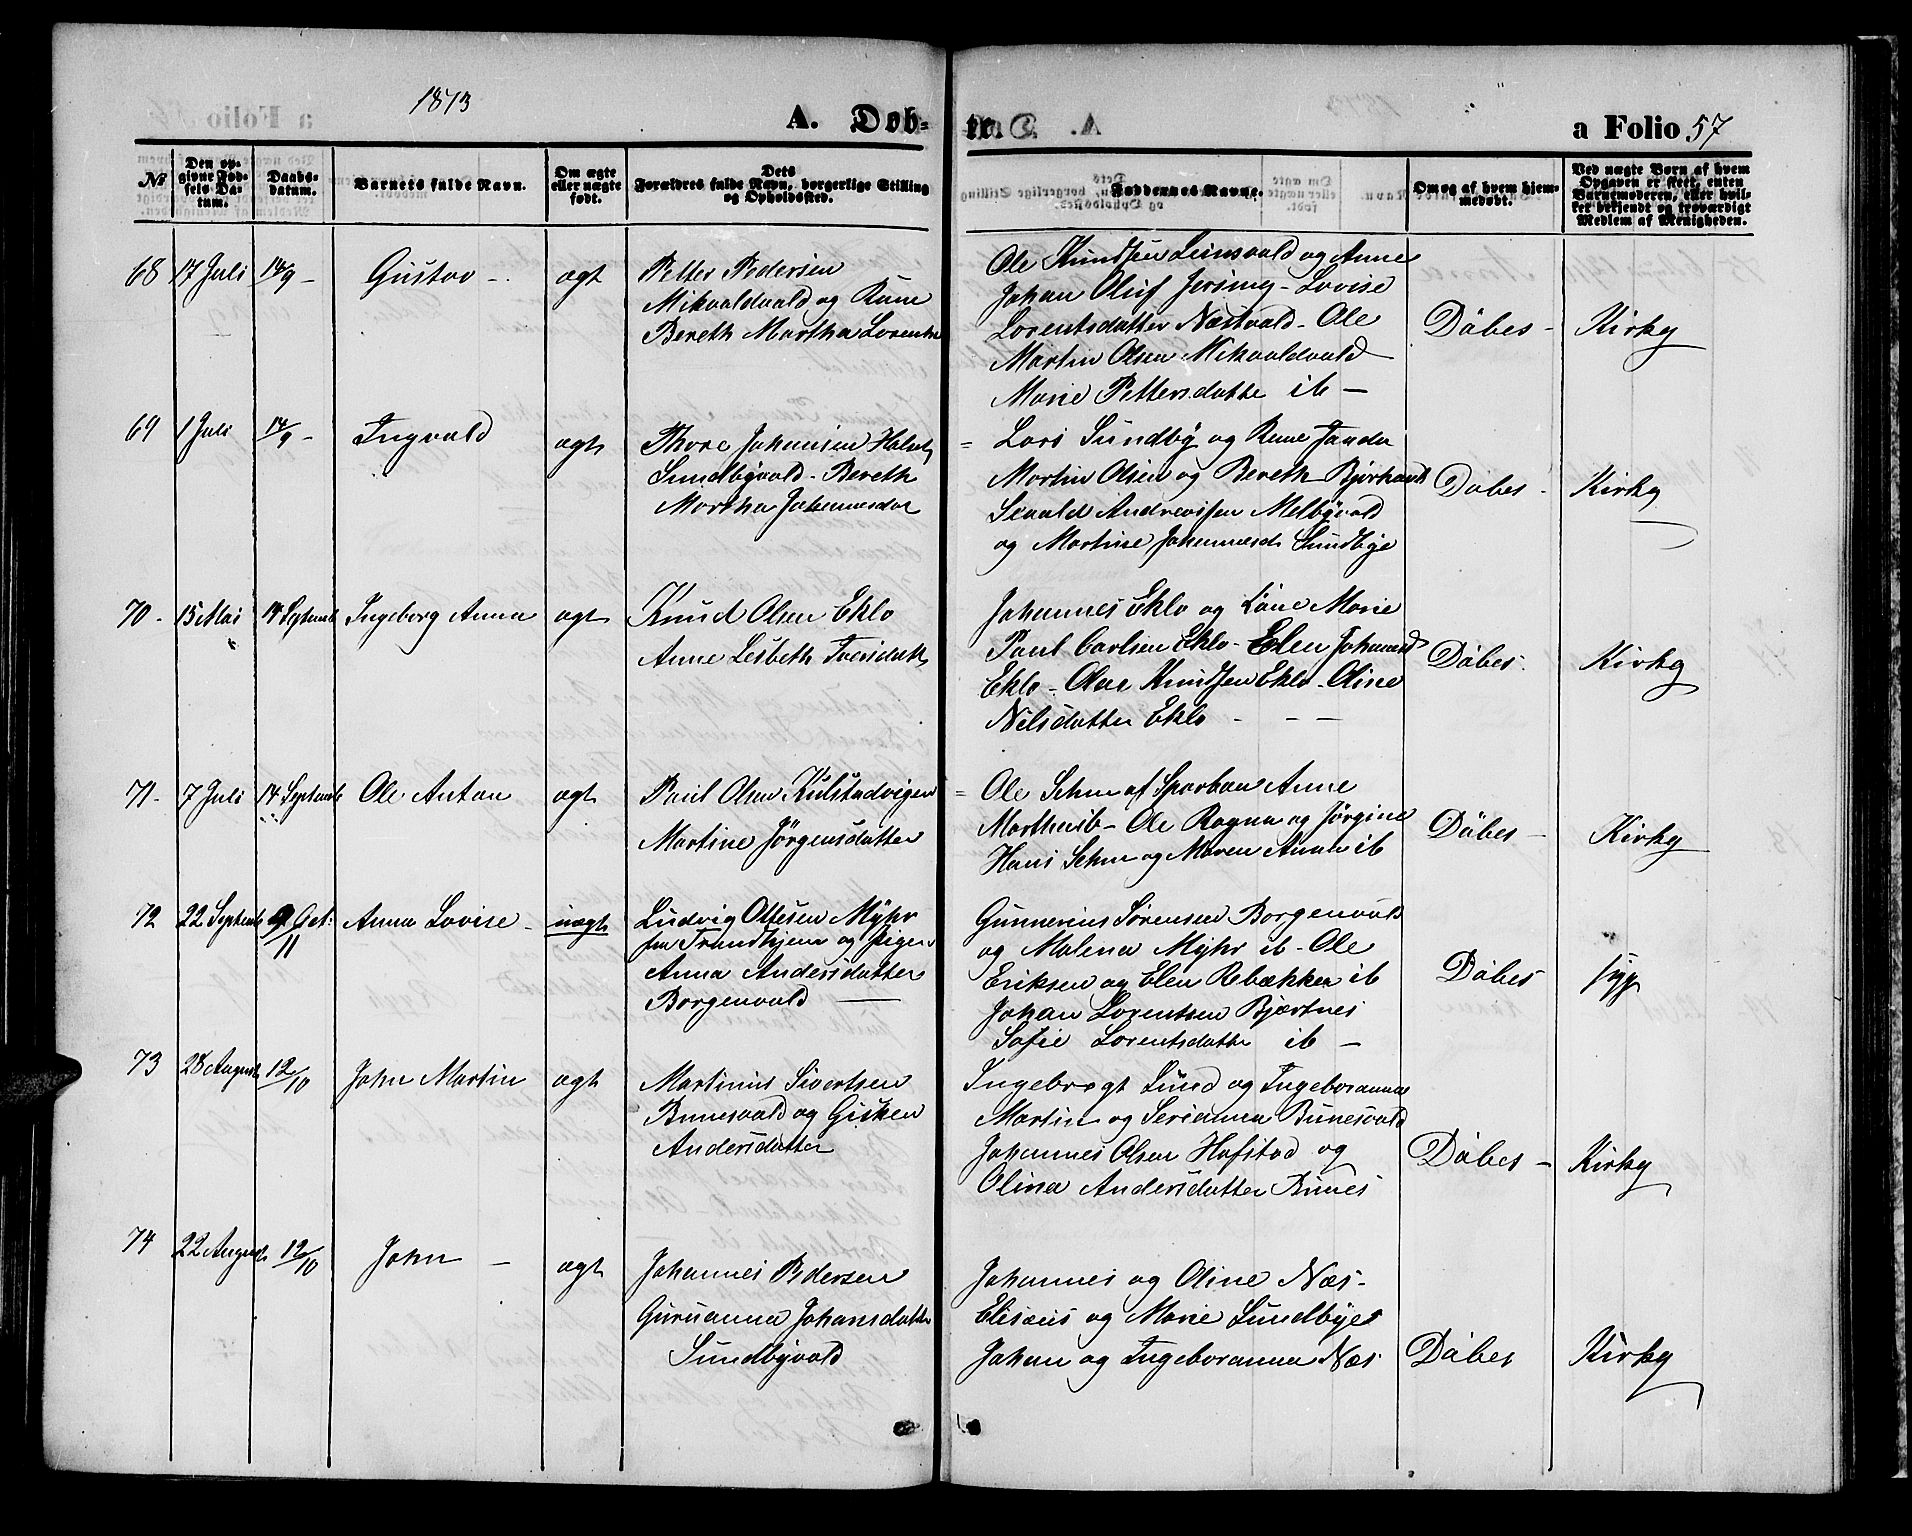 1873
A. Døb-
te.
a Folio 57
No
Den op-
givne Fød-
sels Da-
tum.
Daabs-
datum.
Barnets fulde Navn.
Om ægte
eller uægte
født.
Dets
Forældres fulde Navn, borgerlige Stilling
og Opholdssted.
Faddernes Navne.
Om og af hvem hjem-
medøbt.
Ved uægte Børn af hvem
Opgaven er skeet, enten
Barnemoderen, eller hvil-
ket bekjendt og troværdigt
Medlem af Menigheden.
68 17 Juli 14/9 - Gustav - ægt
Petter Pedersen
Mikvaldvald og Kone
Bereth Martha Lorents
Ole Knudsen Leinsvald og Anne
Johan Oluf Jersing - Lovise
Lorentsdatter Næstvald - Ole
Martin Olsen Mikvaldvald
Marie Pettersdatte ib -
Döbes - Kirky
69 1 Juli 14/9 - Ingvald ægt
Thore Johansen Halset
Sundbyvald - Bereth
Martha Johannesdat
Lars Sundby og Kone
Martin Olsen og Bereth Bjørkanli
Sevald Andreasen Melbyvald
og Martine Johannesd Sundbye
Döbes - Kirky
70 - 15 Mai 14 Septemb Ingeborg Anna ægt
Knud Olsen Eklo
Anne Lesbeth Iversdatt
Johannes Eklo og Kone Marie
Paul Carlsen Eklo - Elen Johannesd
Eklo - Olau Knudsen Eklo - Oline
Nilsdatter Eklo - - -
Döbes. Kirky
71 - 7 Juli 14 Septemb Ole Anton ægt
Paul Olsen Kulstadvigen
Martine Jörgensdatter
Ole Sehm af Sparbou Anne
Martha ib - Ole Ragna og Jørgine
Hans Sehm og Maren Anna ib
Döbes - Kirky
72 22 Septemb 9 Oct: 11 Anna Lovise - uægt
Ludvig Ottesen Myhr
fra Trundhjem og Pigen
Anna Andersdatter
Borgenvald
Gunnerius Sørensen Borgenvald
og Malena Myhr ib - Ole
Eriksen og Elen Rebækka ib
Johan Lorentsen Bjærtnes
Sofie Lorentsdatte ib -
Döbes
73 28 August 12/10 John Martin ægt
Martinus Sivertsen
Bunesvald og Gisken
Andersdatter
Ingebregt Lund og Ingeboranna
Martin og Serianna Bunesvald
Johannes Olsen Hofstad og
Olina Andersdatter Bunes
Döbes - Kirky
74 22 August 12/10 John - ægt
Johannes Pedersen
Guruanna Johansdatte
Sundbyvald
Johannes og Oline Næs -
Elisæus og Marie Sundbyes
Johan og Ingeboranna Næs
Döbes Kirky